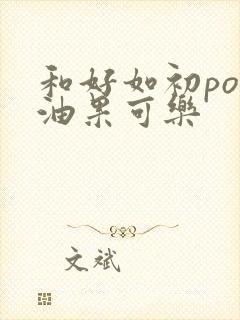 和好如初po
油果可樂
文斌